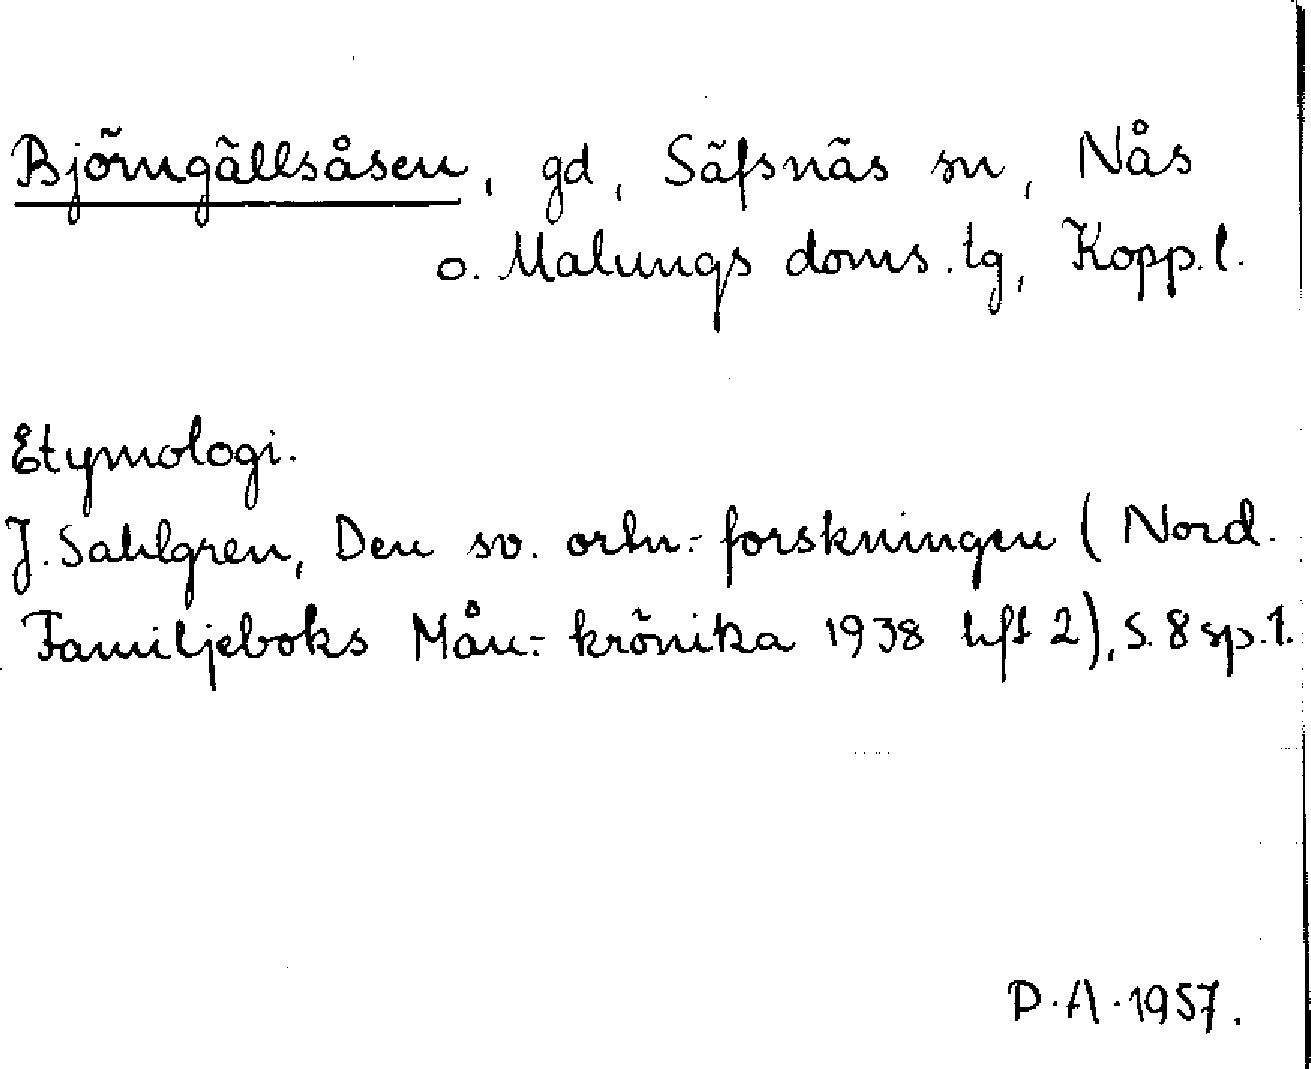 Björngällsåsen, gd, Säfsnäs sn, Nås
o. Malungs doms.tg, Kopp.l.
Etymologi.
J. Sahlgren, Den sv. ortn.-forskningen (Nord.
Familjeboks Mån.-krönika 1938 hft 2), s. 8 sp. 1.
P.A. 1957.